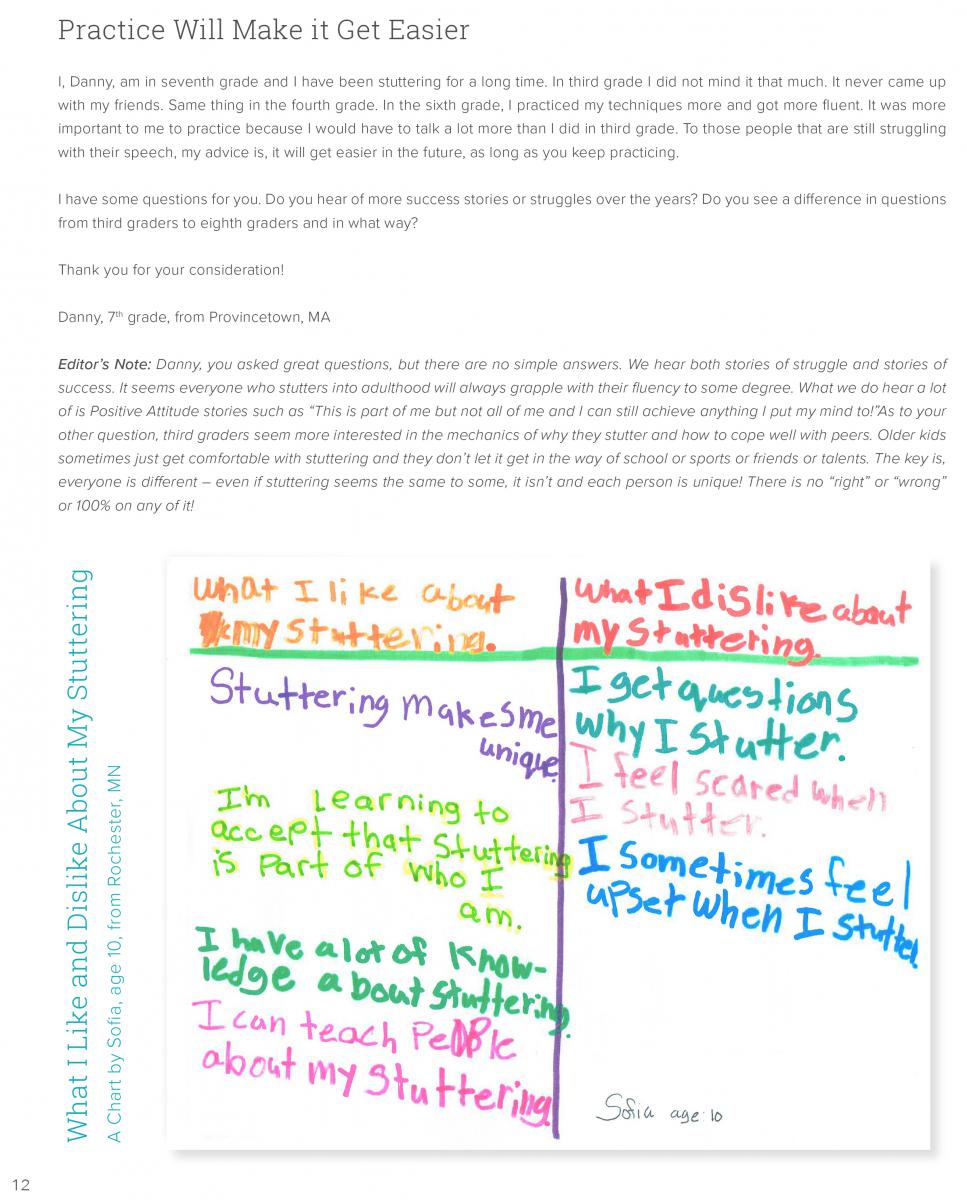 Practice Will Make it Get Easier
I, Danny, am in seventh grade and I have been stuttering for a long time. In third grade I did not mind it that much. It never came up
with my friends. Same thing in the fourth grade. In the sixth grade, I practiced my techniques more and got more fluent. It was more
important to me to practice because I would have to talk a lot more than I did in third grade. To those people that are still struggling
with their speech, my advice is, it will get easier in the future, as long as you keep practicing.
I have some questions for you. Do you hear of more success stories or struggles over the years? Do you see a difference in questions
from third graders to eighth graders and in what way?
Thank you for your consideration!
Danny, 7th grade, from Provincetown, MA
Editor's Note: Danny, you asked great questions, but there are no simple answers. We hear both stories of struggle and stories of
success. It seems everyone who stutters into adulthood will always grapple with their fluency to some degree. What we do hear a lot
of is Positive Attitude stories such as “This is part of me but not all of me and I can still achieve anything I put my mind to!”As to your
other question, third graders seem more interested in the mechanics of why they stutter and how to cope well with peers. Older kids
sometimes just get comfortable with stuttering and they don't let it get in the way of school or sports or friends or talents. The key is,
everyone is different – even if stuttering seems the same to some, it isn't and each person is unique! There is no “right” or “wrong”
or 100% on any of it!
What I Like and Dislike About My Stuttering
A Chart by Sofia, age 10, from Rochester, MN
What I like about
my stuttering.
Stuttering makes me
unique.
I'm Learning to
accept that stuttering
is part of who I
am.
I have a lot of know-
ledge about stuttering.
I can teach people
about my stuttering.
What I dislike about
my stuttering.
I get questions
why I stutter.
I feel scared when
I stutter.
I sometimes feel
upset when I stutter
Sofia age 10
12